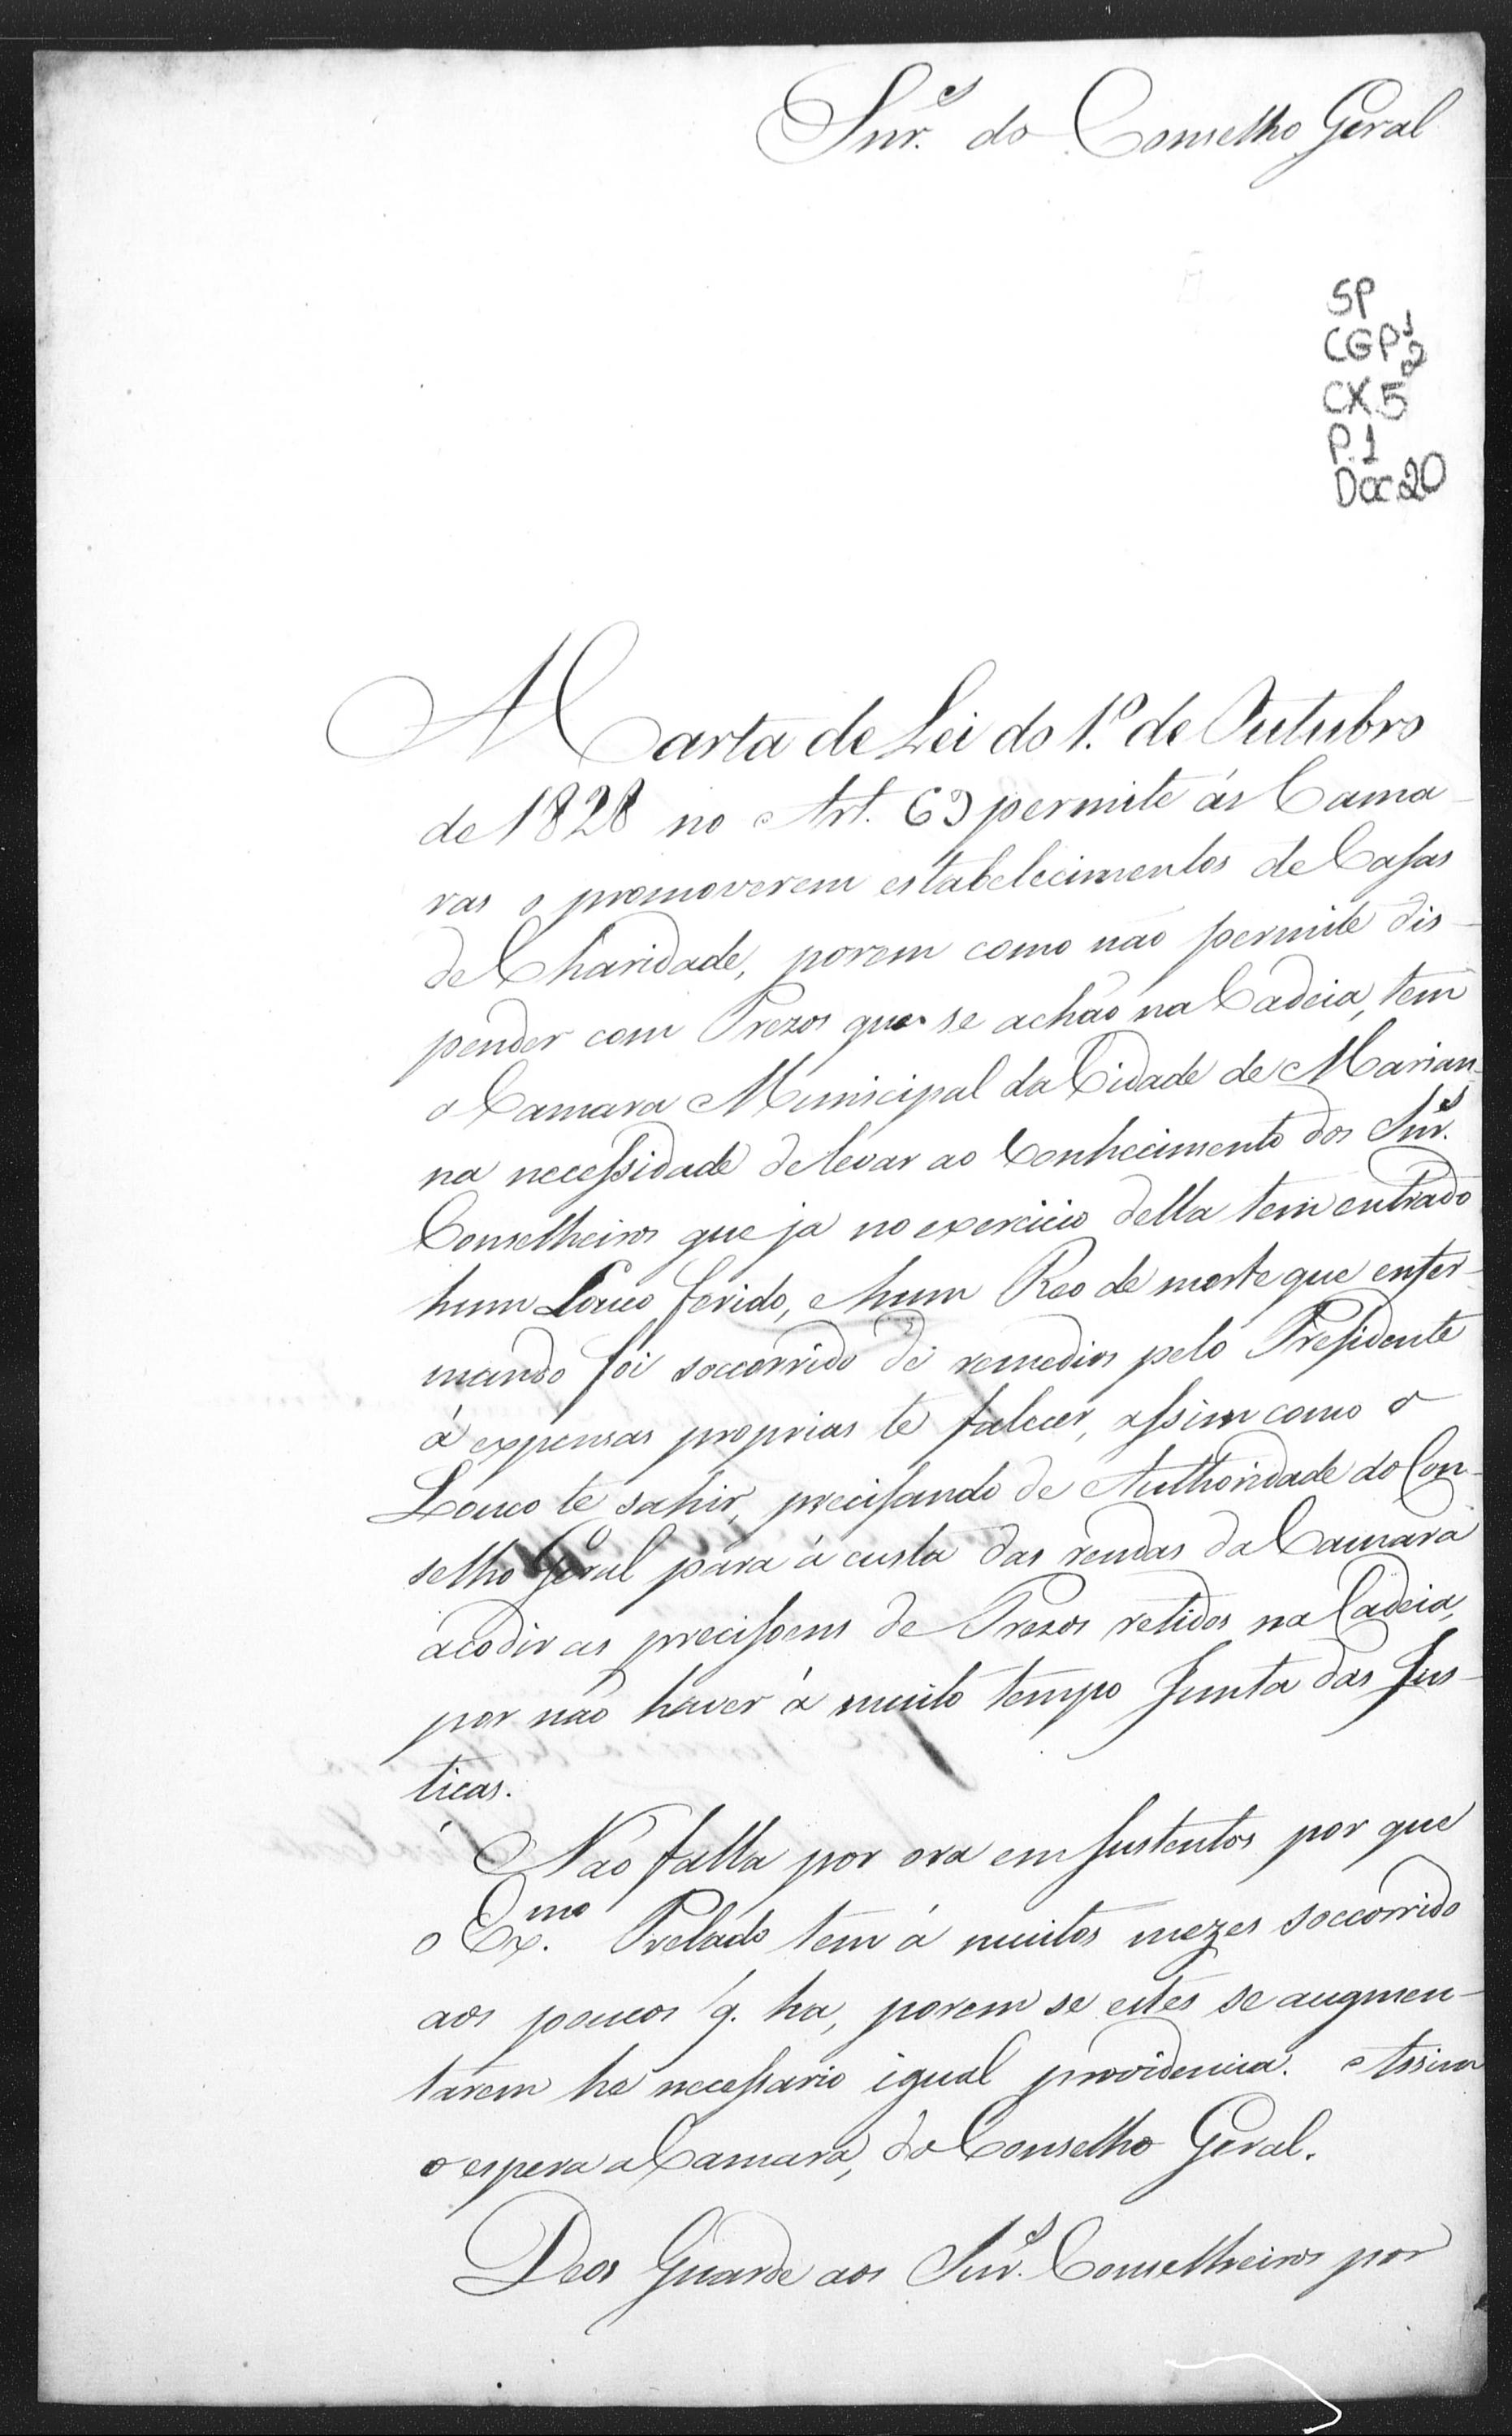 Snr.es do Conselho Geral
SP
CGP 1
2
CX.5
P.1
Doc.20
A Carta de Lei do 1.º de Outubro
de 1828 no Art. 69 permite ás Cama-
ras o promoverem estabelecimentos de Casas
de Charidade, porem como não permite dis-
pender com Prezos que se achão na Cadeia, tem
a Camara Municipal da Cidade de Marian-
na necessidade de levar ao Conhecimento dos Snr.es
Conselheiros que ja no exercicio della tem entrado
hum Louco ferido, e hum Reo de morte que enfer-
mando foi soccorrido de remedios pelo Presidente
á expensas proprias te falecer, assim como o
Louco te sahir, precisando de Authoridade do Con-
selho Geral para á custa das rendas da Camara
acodir as precisoens de Prezos retidos na Cadeia,
por não haver á muito tempo Junta das Jus-
tiças.
Não falta por ora em sustentos por que
o Ex.mo Prelado tem á muitos mezes soccorrido
aos poucos q. ha, porem se estes se augmen-
tarem he necessario igual providencia. Assim
o espera a Camara, do Conselho Geral.
Deos Guarde aos Snr.es Conselheiros por